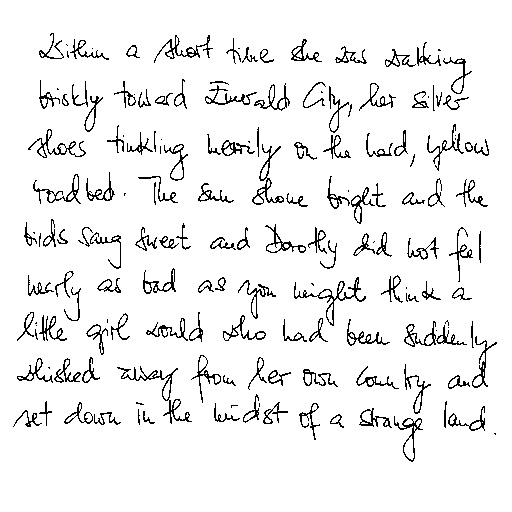 Within a short time she was walking
briskly toward Emerald City, her silver
shoes tinkling merrily on the hard, yellow
roadbed. The sun shone bright and the
birds sang sweet and Dorothy did not feel
nearly as bad as you might think a
little girl would who had been suddenly
whisked away from her own country and
set down in the midst of a strange land.